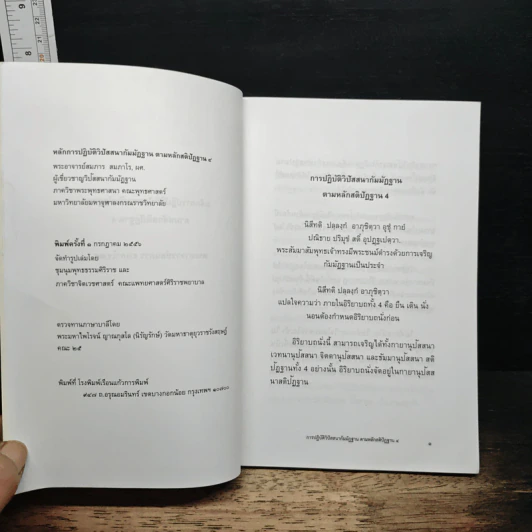 หลักการปฏิบัติวิปัสสนากัมมัฏฐาน ตามหลักสติปัฏฐาน ๔
พระอาจารย์สมภาร สมภาโร, ผศ.
ผู้เชี่ยวชาญวิปัสสนากัมมัฏฐาน
ภาควิชาพระพุทธศาสนา คณะพุทธศาสตร์
มหาวิทยาลัยมหาจุฬาลงกรณราชวิทยาลัย
พิมพ์ครั้งที่ ๑ กรกฎาคม ๒๕๕๖
จัดทำรูปเล่มโดย
ชุมนุมพุทธธรรมศิริราช และ
ภาควิชาจิตเวชศาสตร์ คณะแพทยศาสตร์ศิริราชพยาบาล
ตรวจทานภาษาบาลีโดย
พระมหาไพโรจน์ ญาณกุสโล (นิรัญรักษ์) วัดมหาธาตุยุวราชรังสฤษฎิ์
คณะ ๒๕
พิมพ์ที่ โรงพิมพ์เรือนแก้วการพิมพ์
๙๔๗ ถ.อรุณอมรินทร์ เขตบางกอกน้อย กรุงเทพฯ ๑๐๗๐๐
การปฏิบัติวิปัสสนากัมมัฏฐาน
ตามหลักสติปัฏฐาน 4
นิสีทติ ปลฺลงฺกํ อาภุชิตฺวา อุชุํ กายํ
ปณิธาย ปริมุขํ สตึ อุปฏฺฐเปตฺวา.
พระสัมมาสัมพุทธเจ้าทรงมีพระชนม์ดำรงด้วยการเจริญ
กัมมัฏฐานเป็นประจำ
นิสีทติ ปลฺลงฺกํ อาภุชิตฺวา
แปลใจความว่า ภายในอิริยาบถทั้ง 4 คือ ยืน เดิน นั่ง
นอนต้องกำหนดอิริยาบถนั่งก่อน
อิริยาบถนั่งนี้ สามารถเจริญได้ทั้งกายานุปัสสนา
เวทนานุปัสสนา จิตตานุปัสสนา และธัมมานุปัสสนา สติ
ปัฏฐานทั้ง 4 อย่างนั้น อิริยาบถนั่งจัดอยู่ในกายานุปัสส
นาสติปัฏฐาน
การปฏิบัติวิปัสสนากัมมัฏฐาน ตามหลักสติปัฏฐาน ๔